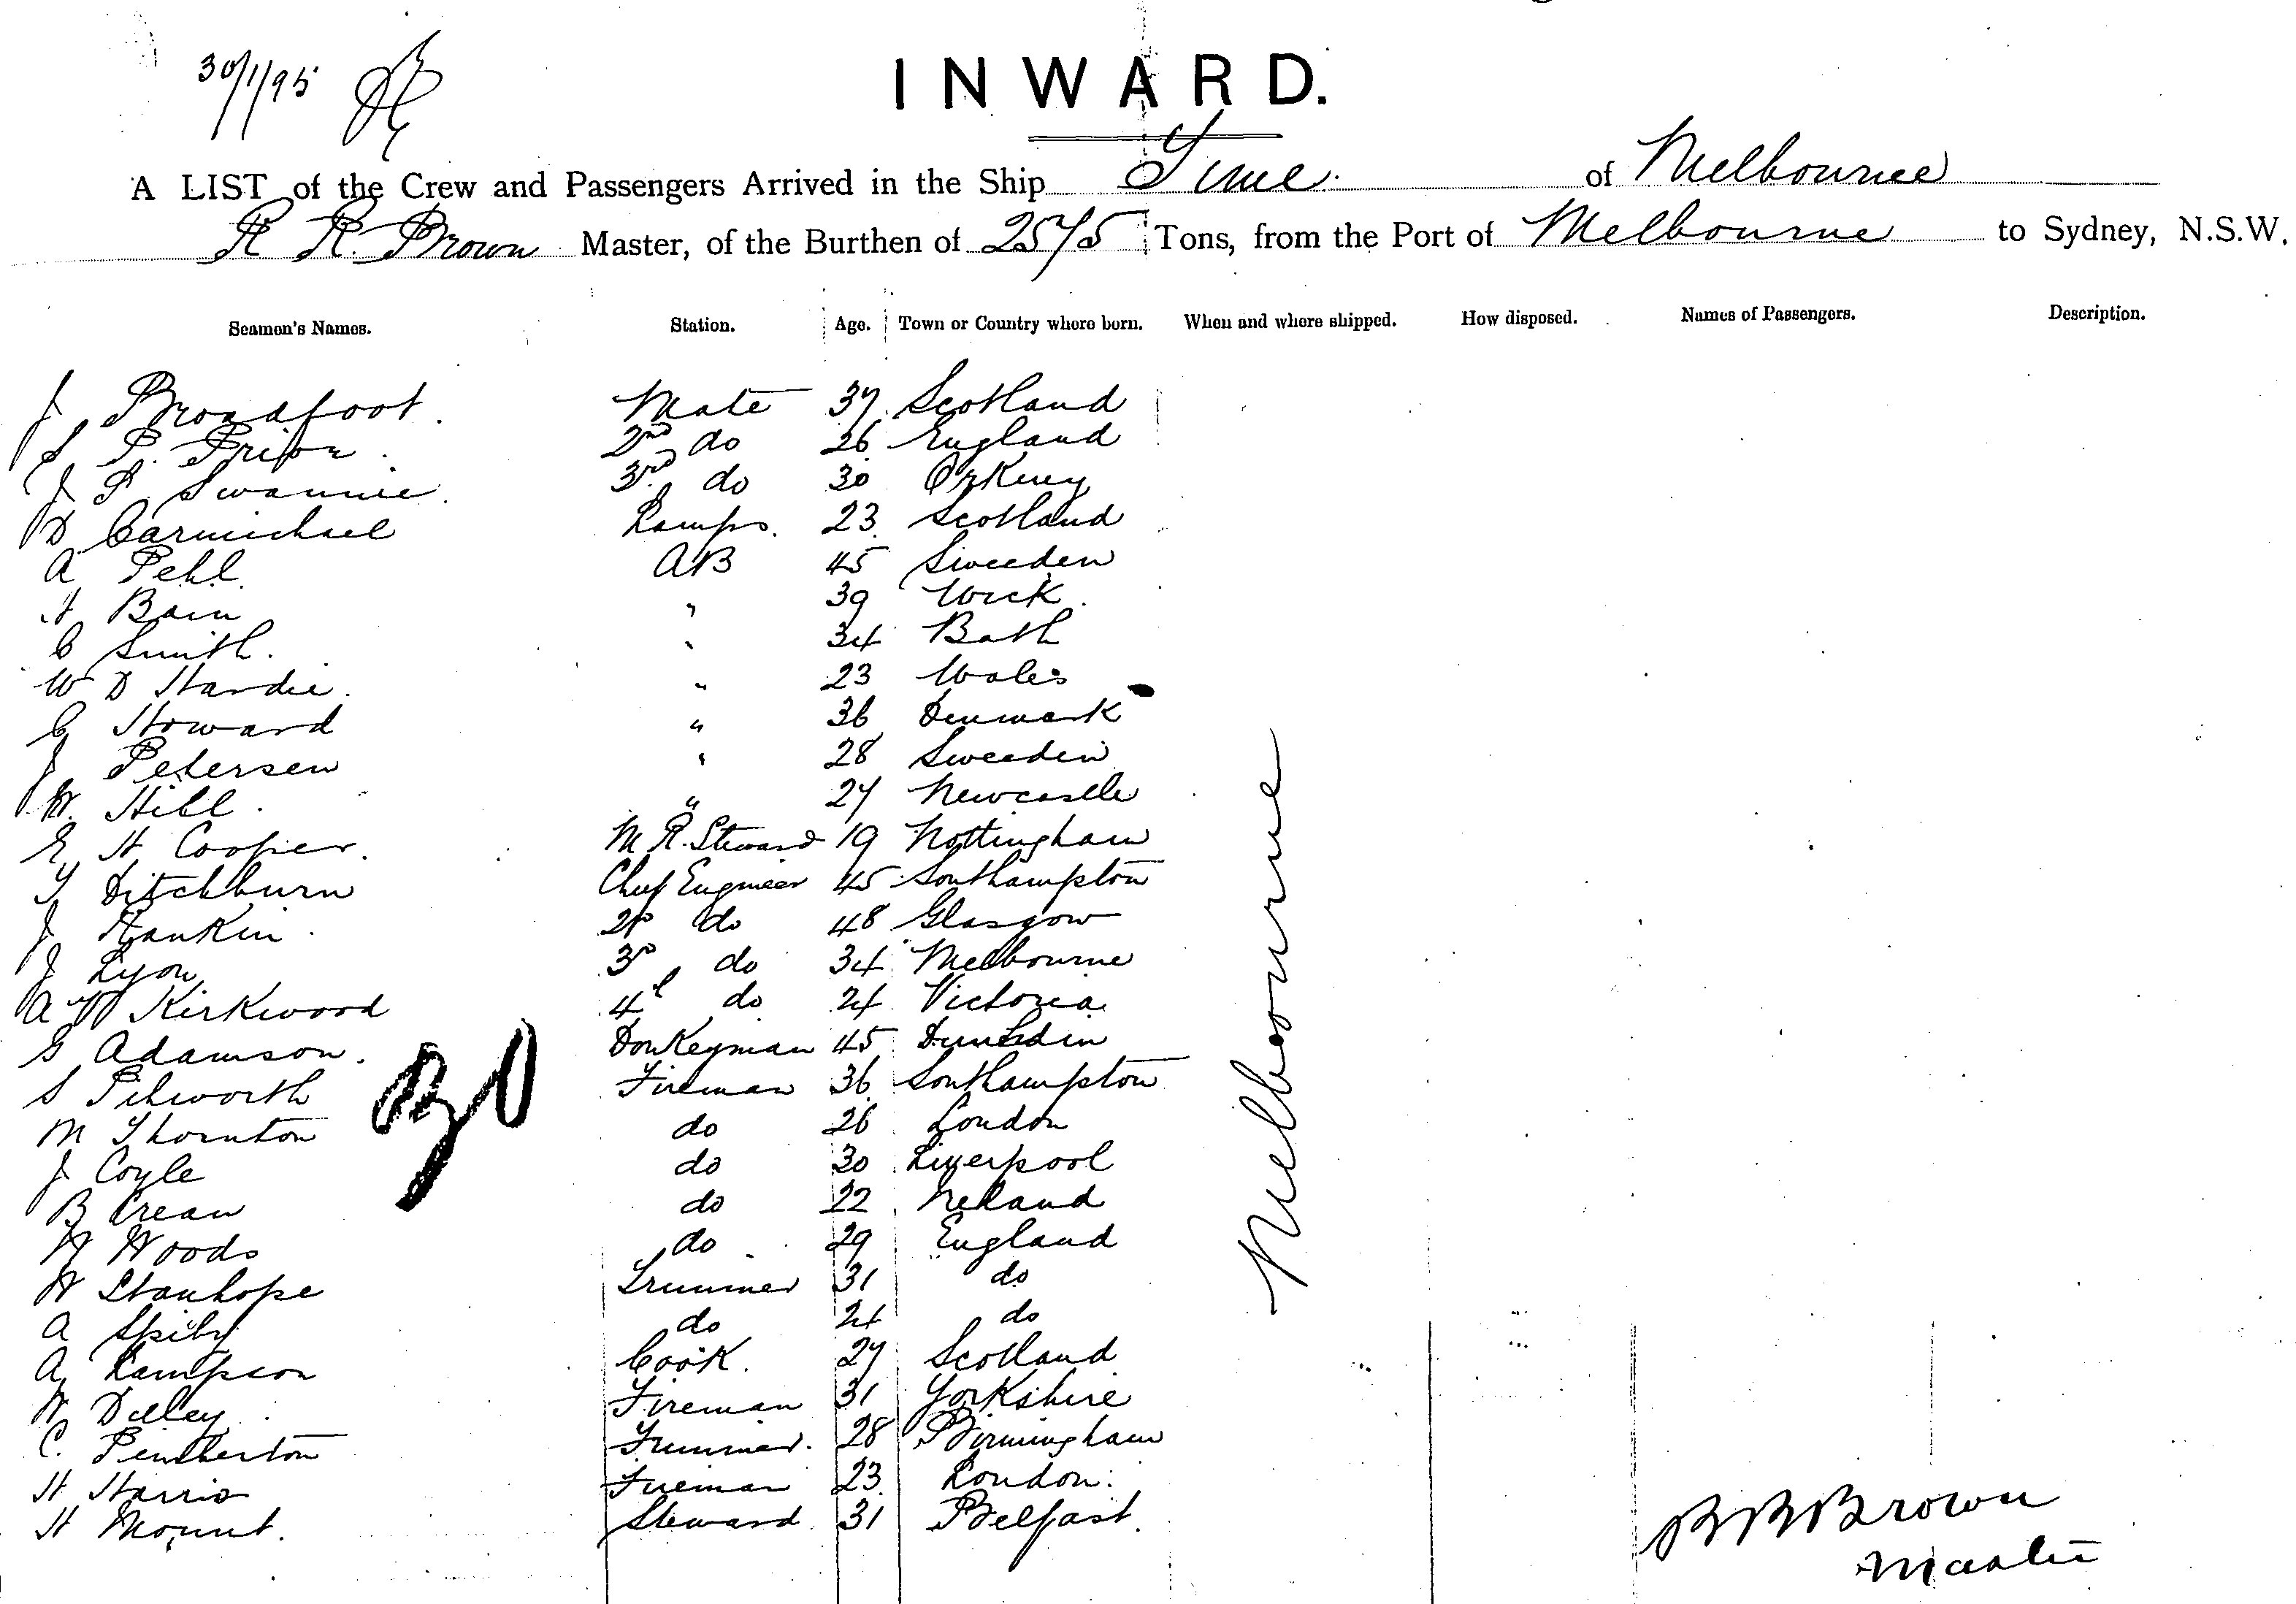 30/1/95
INWARD.
A LIST of the Crew and Passengers Arrived in the Ship Time of Melbourne
R R. Brown Master, of the Burthen of 2575 Tons, from the Port of Melbourne to Sydney, N.S.W.
Seamen's Names. Station. Age. Town or Country where born. When and where shipped. How disposed. Names of Passengers. Description.
J Broadfoot. Mate 37 Scotland
P. 2nd do 26 England
J Swannie. 3rd do 30 Orkney
D Carmichael Lamps. 23 Scotland
A Pehl AB 45 Sweeden
A Bain " 39 Wick
C Smith. " 34 Bath
W D Hardie. " 23 Wales
C Howard " 36 Denmark
J Petersen " 28 Sweeden
W. Hill. " 27 Newcastle
E H Cooper. M R. Steward 19 Nottingham
T Ditchburn Chief Engineer 45 Southampton
J Rankin. 2nd do 48 Glasgow
J Lyon 3rd do 34 Melbourne
A W Kirkwood 4th do 24 Victoria
G Adamson. Donkeyman 45 Dunedin
S Pilworth Fireman 36 Southampton
M Thornton do 26 London
J Coyle do 30 Liverpool
B Crean do 22 Ireland
W Woods do 29 England
W Stanhope Trimmer 31 do
A Spiby do 24 do
A Lampson Cook. 27 Scotland
W Dilley Fireman 31 Yorkshire
C. Pemberton Trimmer. 28 Birmingham
H Harris Fireman 23 London.
H Mount. Steward 31 Belfast.
Melbourne
30
RRBrown
Master